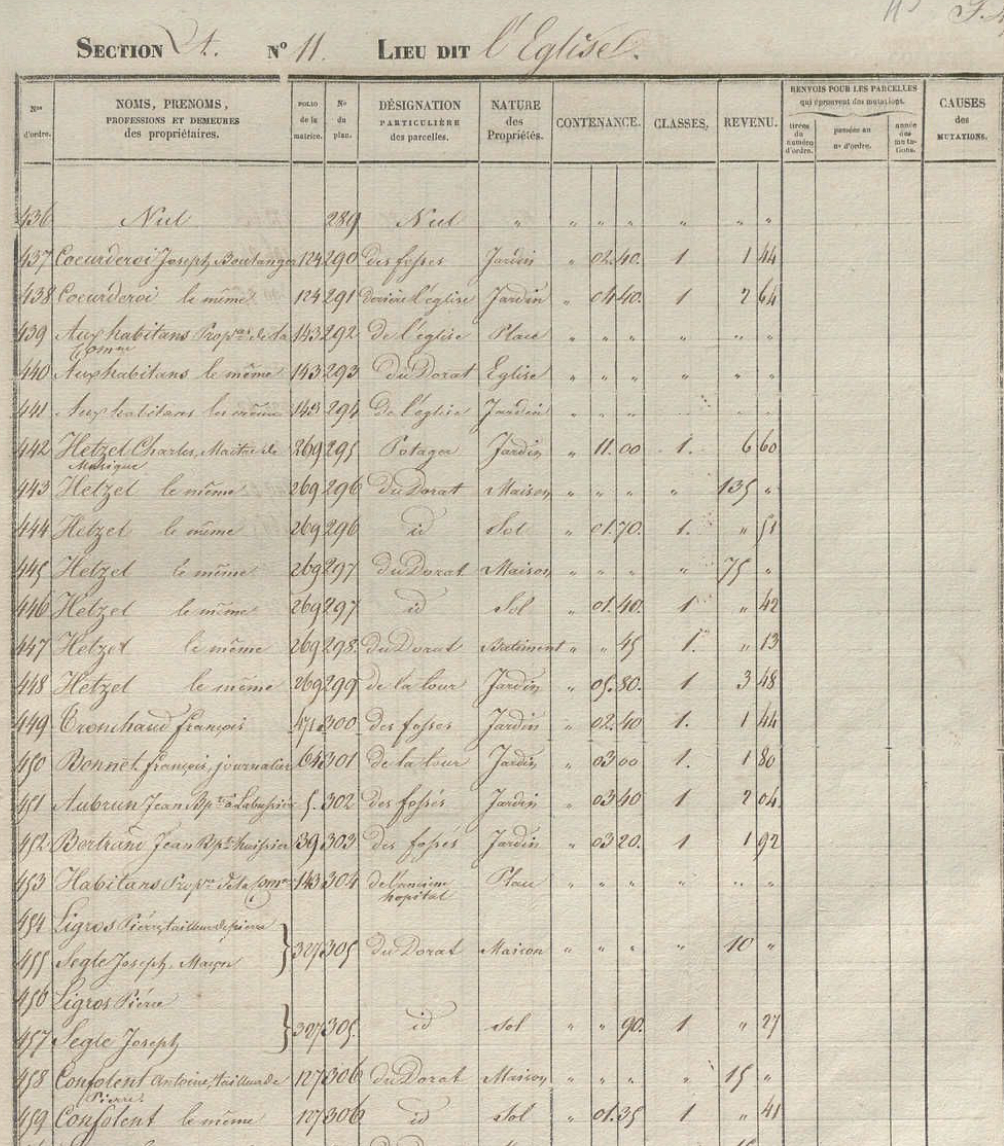 SECTION A. N° 11. LIEU DIT l'Eglise.
Nos d'ordre. NOMS, PRENOMS, PROFESSIONS ET DEMEURES des propriétaires. FOLIO de la matrice. No du plan. DÉSIGNATION PARTICULIÈRE des parcelles. NATURE des Propriétés. CONTENANCE. CLASSES. REVENU. RENVOIS POUR LES PARCELLES qui éprouvent des mutations. tirées du numéro d'ordre. passées au no d'ordre. année des mutations. CAUSES des MUTATIONS.
436 Nul 289 Nul " " " " " " "
437 Coeurderoi Joseph Boulanger 124 290 des fossés Jardin " 02. 40. 1 1 44
438 Coeurderoi le même 124 291 derière l'église Jardin " 04 40. 1 2 64
439 Aux habitans Prop.res de la Comne 143 292 de l'église Place " " " " " "
440 Aux habitans le même 143 293 du Dorat Eglise " " " " " "
441 Aux habitans les même 143 294 de l'église Jardin " " " " "
442 Hetzel Charles, Maitre de Musique 269 295 Potager Jardin " 11. 00 1. 6 60
443 Hetzel le même 269 296 du Dorat Maison " " " " 135 "
444 Hetzel le même 269 296 id Sol " 01. 70. 1. " 51
445 Hetzel le même 269 297 du Dorat Maison " " " " 75 "
446 Hetzel le même 269 297 id Sol " 01. 40. 1 " 42
447 Hetzel le même 269 298 du Dorat Batiment " " 45 1. " 13
448 Hetzel le même 269 299 de la tour Jardin " 05. 80. 1 3 48
449 Cronchaud françois 471 300 des fossés Jardin " 02. 40 1. 1 44
450 Bonnet françois, journalier 64 301 de la tour Jardin " 03 00 1. 1 80
451 Aubrun Jean Bpte à Labussière 5. 302 des fossés Jardin " 03 40 1 2 04
452 Bertrand Jean Bpte huissier 39 303 des fossés Jardin " 03 20. 1 1 92
453 Habitans Propre de la Comne 143 304 de l'ancien hopital Place " " " " " "
454 Ligros Piére, tailleur de pierre
455 Segle Joseph, Maçon 327 305 du Dorat Maison " " " " 10 "
456 Ligros Piére
457 Segle Joseph 327 305. id Sol " " 90. 1 " 27
458 Confolent Antoine, tailleur de Pierre 127 306 du Dorat Maison " " " " 15 "
459 Confolent le même 127 306 id Sol " 01. 35 1 " 41